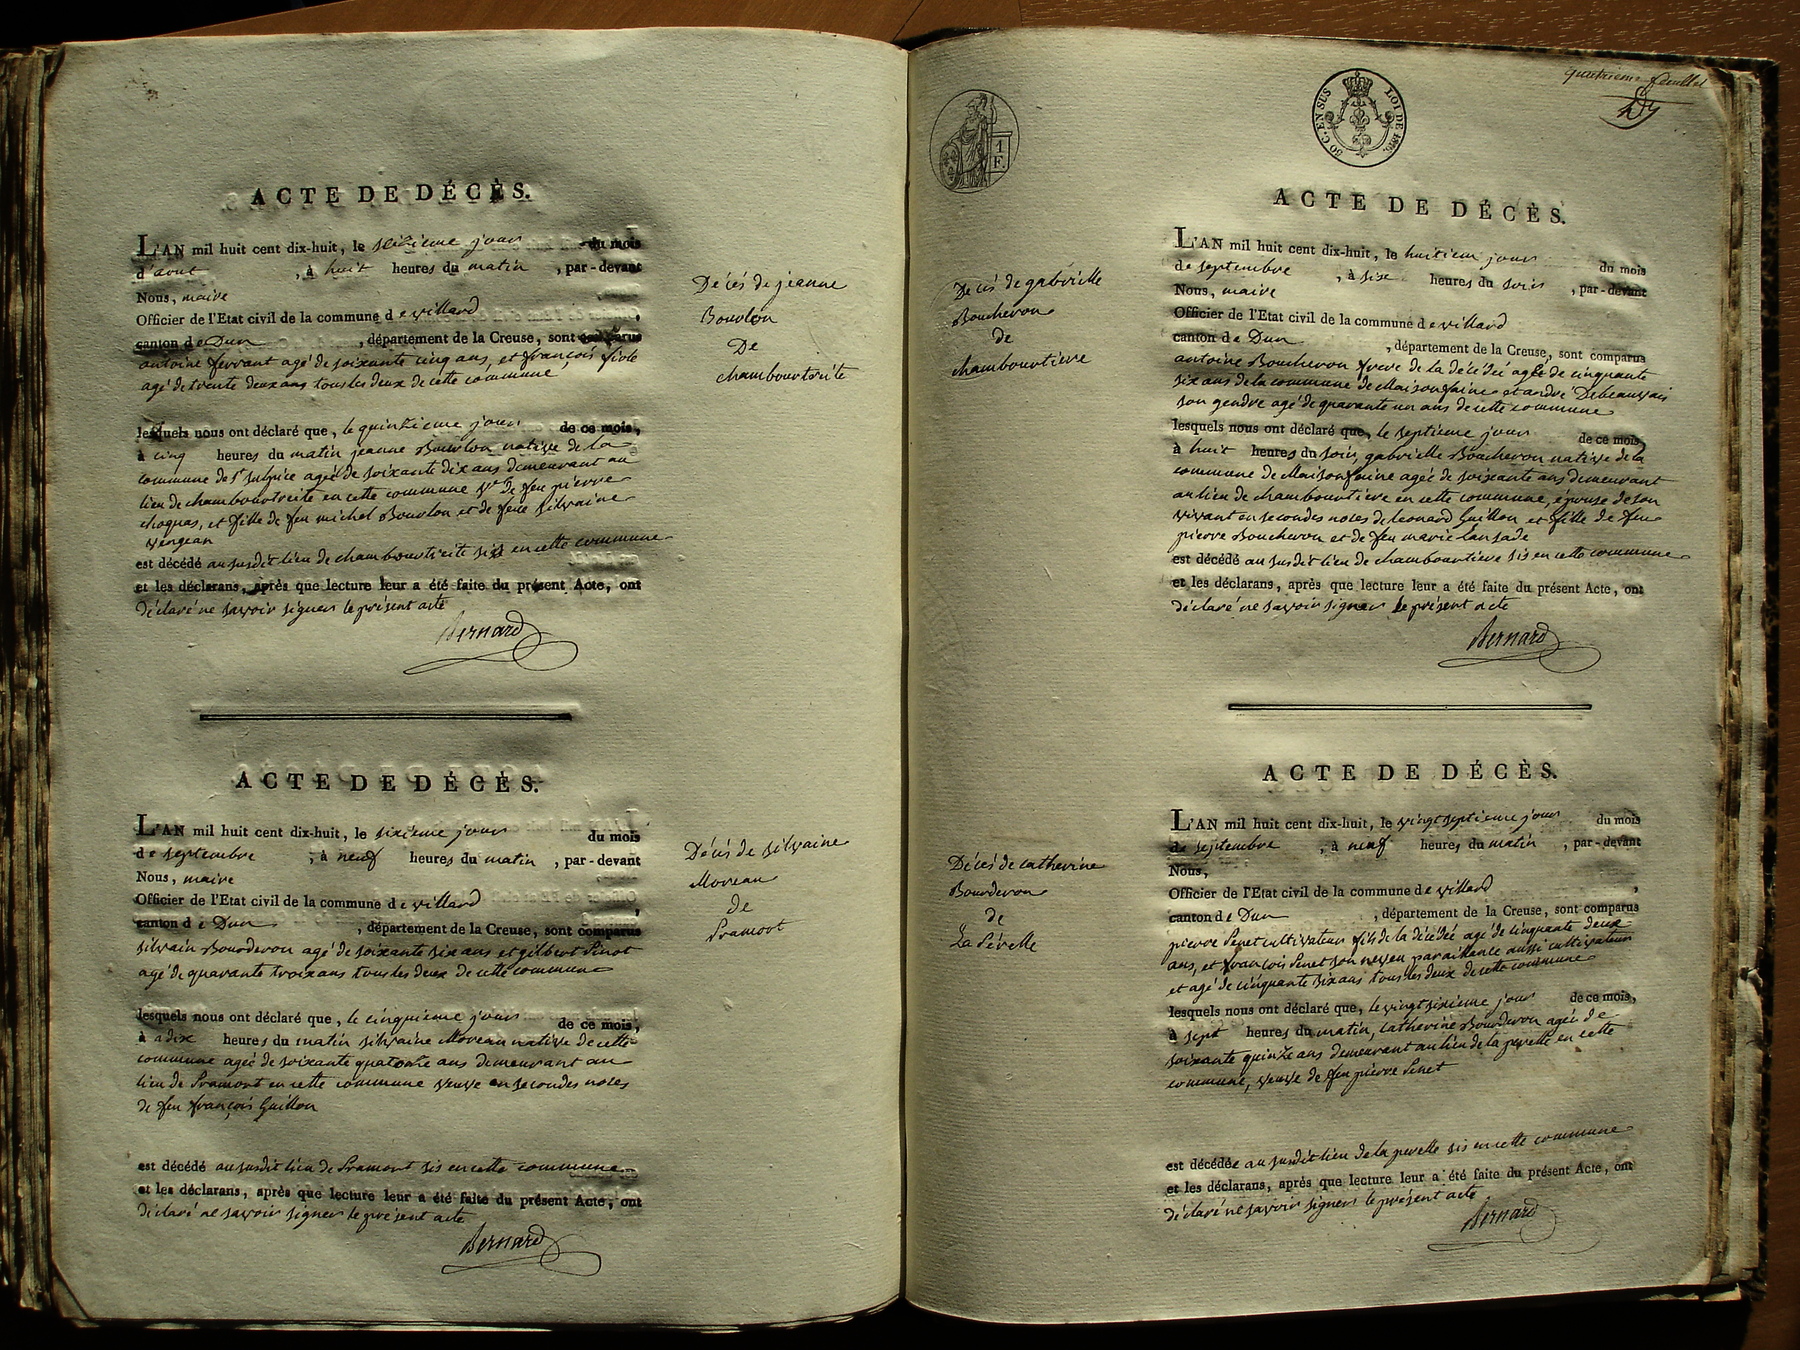 ACTE DE DÉCÈS.
L'AN mil huit cent dix-huit, le seizieme jour du mois
d'aout, à huit heures du matin, par-devant
Nous, maire
Officier de l'Etat civil de la commune de villard,
canton de Dun, département de la Creuse, sont comparus
antoine ferrant agé de soixante cinq ans, et françois
agé de trente deux ans tous les deux de cette commune
lesquels nous ont déclaré que, le quinzieme jour de ce mois,
à cinq heures du matin jeanne Bourlon native de la
commune de st sulpice agé de soixante dix ans demeurant au
lieu de chambourtreite en cette commune Ve de feu pierre
et fille de feu michel Bourlon et de feue silvaine
vengean
est décédé au susdit lieu de chambourtreite sis en cette commune
et les déclarans, après que lecture leur a été faite du présent Acte, ont
déclaré ne savoir signer le présent acte
Bernard
Décés de jeanne
Bourlon
De
chambourtreite
ACTE DE DÉCÈS.
L'AN mil huit cent dix-huit, le sixieme jour du mois
de septembre, à neuf heures du matin, par-devant
Nous, maire
Officier de l'Etat civil de la commune de villard,
canton de Dun, département de la Creuse, sont comparus
silvain Bourderon agé de soixante six ans et gilbert Pinot
agé de quarante trois ans tous les deux de cette commune
lesquels nous ont déclaré que, le cinquieme jour de ce mois,
à dix heures du matin silvaine Moreau native de cette
commune agée de soixante quatorze ans demeurant au
lieu de Pramont en cette commune veuve en secondes noces
de feu françois Guillon
est décédé au susdit lieu de Pramont sis en cette commune
et les déclarans, après que lecture leur a été faite du présent Acte, ont
déclaré ne savoir signer le présent acte
Bernard
Décés de silvaine
Moreau
de
Pramont
1
F.
50 C. EN SUS
LOI DE 1816.
quatrieme feuillet
ACTE DE DÉCÈS.
L'AN mil huit cent dix-huit, le huitieme jour du mois
de septembre, à six heures du soir, par-devant
Nous, maire
Officier de l'Etat civil de la commune de villard
canton de Dun, département de la Creuse, sont comparus
antoine Boucheron frere de la décédé agé de cinquante
six ans de la commune de Maisonfaine et andré Debeauvais
son gendre agé de quarante un ans de cette commune
lesquels nous ont déclaré que, le septieme jour de ce mois,
à huit heures du soir, gabrielle Boucheron native de la
commune de Maisonfaine agé de soixante ans demeurant
au lieu de chambourtiere en cette commune, épouse de son
vivant en secondes noces de leonard Guillon et fille de feu
pierre Boucheron et de feu marie Lansade
est décédé au susdit lieu de chambourtiere sis en cette commune
et les déclarans, après que lecture leur a été faite du présent Acte, ont
déclaré ne savoir signer le présent acte
Bernard
Décés de gabrielle
Boucheron
de
chambourtiere
ACTE DE DÉCÈS.
L'AN mil huit cent dix-huit, le vingt septieme jour du mois
de septembre, à neuf heures du matin, par-devant
Nous,
Officier de l'Etat civil de la commune de villard,
canton de Dun, département de la Creuse, sont comparus
pierre Penet cultivateur fils de la décédé agé de cinquante deux
ans, et françois Penet son neveu par alliance aussi cultivateur
et agé de cinquante six ans tous les deux de cette commune
lesquels nous ont déclaré que, le vingt sixieme jour de ce mois,
à sept heures du matin, catherine Bourderon agée de
soixante quinze ans demeurant au lieu de la perelle en cette
commune, veuve de feu pierre Penet
est décédée au susdit lieu de la perelle sis en cette commune
et les déclarans, après que lecture leur a été faite du présent Acte, ont
déclaré ne savoir signer le présent acte
Bernard
Décés de catherine
Bourderon
de
La Pérelle